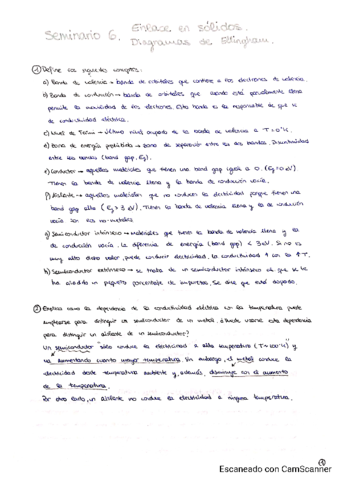 Seminario 6. Enlace en sólidos.
Diagramas de Ellingham.
① Define los siguientes conceptos.
a) Banda de valencia → banda de orbitales que contiene a los electrones de valencia.
b) Banda de conducción → banda de orbitales que siendo está parcialmente llena
permite la movilidad de los electrones. Esta banda es la responsable de que
de conductividad eléctrica.
c) Nivel de Fermi → último nivel ocupado de la banda de valencia a T = 0 K.
d) Zona de energía prohibida → zona de separación entre las dos bandas. Discontinuidad
entre las bandas (band gap, Eg).
e) Conductor → aquellos materiales que tienen una band gap igual a 0. (Eg = 0 eV)
Tienen la banda de valencia llena y la banda de conducción vacía.
f) Aislante → aquellos materiales que no conducen la electricidad porque tienen una
band gap alta (Eg > 3 eV). Tienen la banda de valencia llena y la de conducción
vacía. Son los no-metales
g) Semiconductor intrínseco → materiales que tienen la banda de valencia llena y la
de conducción vacía. La diferencia de energía (band gap) < 3 eV. Si no es
muy alto dicho valor, puede conducir electricidad. La conductividad ↑ con la ↑ T.
h) Semiconductor extrínseco → se trata de un semiconductor intrínseco al que se le
ha añadido un pequeño porcentaje de impurezas. Se dice que está dopado.
② Explica cómo la dependencia de la conductividad eléctrica con la temperatura puede
emplearse para distinguir un semiconductor de un metal. ¿Puede usarse esta dependencia
para distinguir un aislante de un semiconductor?
Un semiconductor sólo conduce la electricidad a alta temperatura y
va aumentando cuanto mayor temperatura. Sin embargo, el metal conduce la
electricidad desde temperatura ambiente y, además, disminuye con el aumento
de la temperatura.
Por otro lado, un aislante no conduce la electricidad a ninguna temperatura.
Escaneado con CamScanner